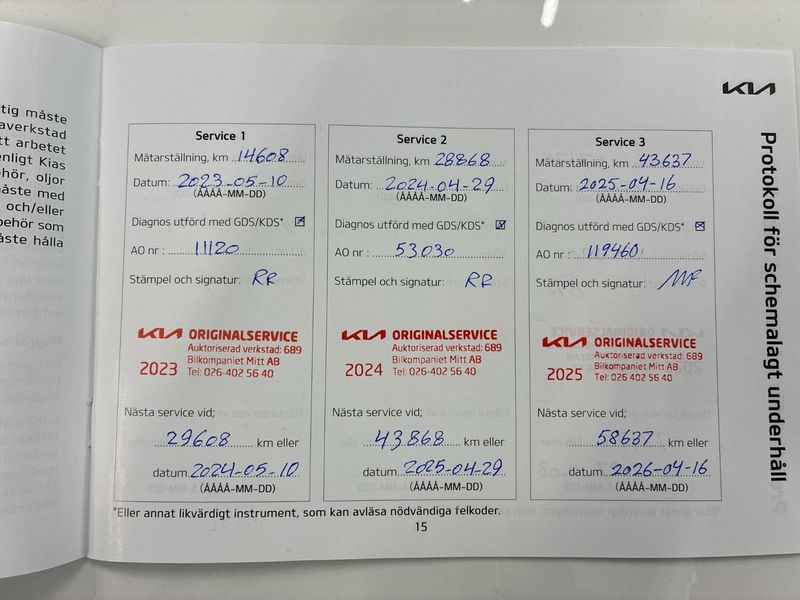 tig måste
averkstad
tt arbetet
enligt Kias
ehör, oljor
måste med
och/eller
behör som
åste hålla
KIA
Protokoll för schemalagt underhåll
Service 1
Mätarställning, km 14608
Datum: 2023-05-10
(ÅÅÅÅ-MM-DD)
Diagnos utförd med GDS/KDS*
AO nr : 11120
Stämpel och signatur: RR
KIA ORIGINALSERVICE
Auktoriserad verkstad: 689
Bilkompaniet Mitt AB
2023 Tel: 026-402 56 40
Nästa service vid;
29608 km eller
datum 2024-05-10
(ÅÅÅÅ-MM-DD)
Service 2
Mätarställning, km 28868
Datum: 2024-04-29
(ÅÅÅÅ-MM-DD)
Diagnos utförd med GDS/KDS*
AO nr : 53030
Stämpel och signatur: RR
KIA ORIGINALSERVICE
Auktoriserad verkstad: 689
Bilkompaniet Mitt AB
2024 Tel: 026-402 56 40
Nästa service vid;
43868 km eller
datum 2025-04-29
(ÅÅÅÅ-MM-DD)
Service 3
Mätarställning, km 43637
Datum: 2025-04-16
(ÅÅÅÅ-MM-DD)
Diagnos utförd med GDS/KDS*
AO nr : 119460
Stämpel och signatur:
KIA ORIGINALSERVICE
Auktoriserad verkstad: 689
Bilkompaniet Mitt AB
2025 Tel: 026-402 56 40
Nästa service vid;
58637 km eller
datum 2026-04-16
(ÅÅÅÅ-MM-DD)
*Eller annat likvärdigt instrument, som kan avläsa nödvändiga felkoder.
15